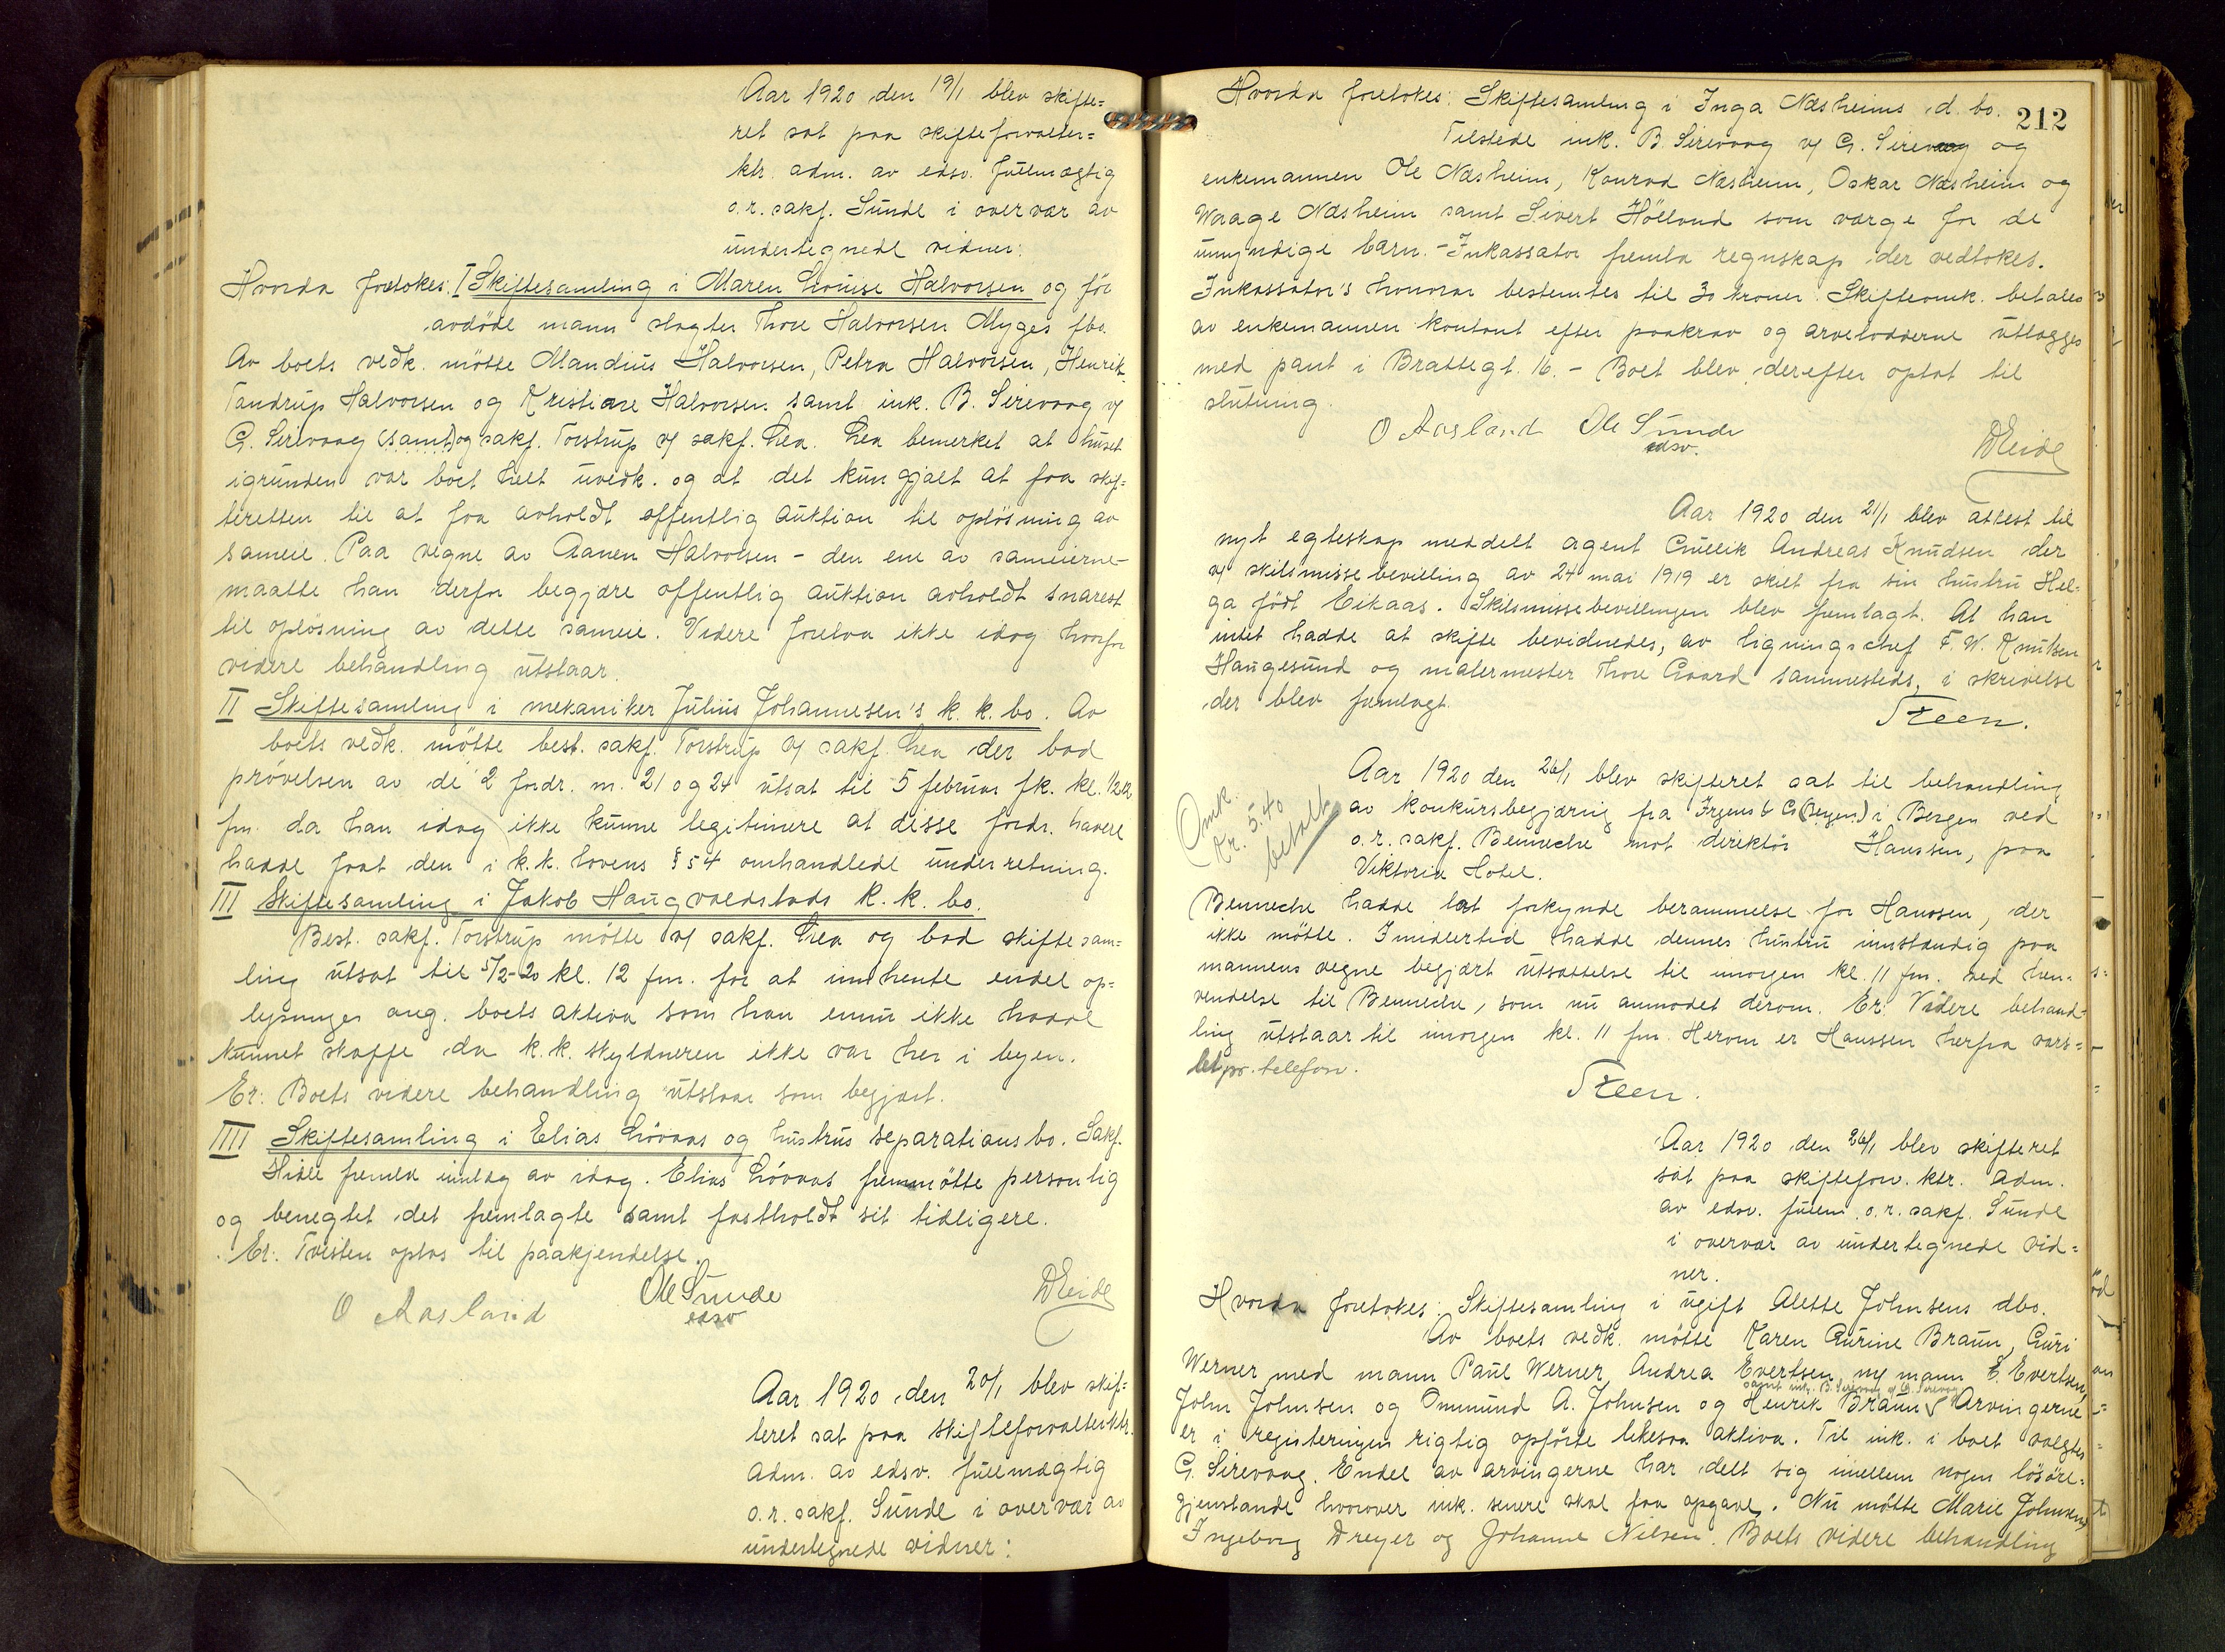 Aar 1920 den 19/1 blev skifte=
ret sat paa skifteforvalter=
ktr. adm. av edsv. fullmægtig
o.r. sakf. Sunde i overvær av
undertegnede vidner:
Hvorda foretokes: I Skiftesamling i Maren Louise Halvorsen og før
avdøde mann slagter Thore Halvorsen Myges fbo.
Av boets vedk. møtte Mandius Halvorsen, Petra Halvorsen, Henrik
Tandrup Halvorsen og Kristiane Halvorsen samt ink. B. Sirevaag v/
G. Sirevaag (samt) og sakf. Torstrup v/ sakf. Lea. Lea bemerket at huset
igrunden var boet helt uvedk. og at det kun gjalt at faa skif=
teretten til at faa avholdt offentlig auktion til opløsning av
sameie. Paa vegne av Aanen Halvorsen - den ene av sameierne-
maatte han derfor begjære offentlig auktion avholdt snarest
til opløsning av dette sameie. Videre foretoa ikke idag hvorfor
videre behandling utstaar.
II Skiftesamling i mekaniker Julius Johannesen's k.k. bo. Av
boets vedk. møtte best. sakf. Torstrup v/ sakf. Lea der bad
prøvelsen av de 2 fordr. nr. 21 og 24 utsat til 5 februar fk. kl. 1/2 12
fm. da han idag ikke kunne legitimere at disse fordr. havere
hadde faat den i k.k. lovens § 54 omhandlede underretning.
III Skiftesamling i Jakob Haugvaldstads k.k. bo.
Best. sakf. Torstrup møtte v/ sakf. Lea og bad skiftesam=
ling utsat til 5/2-20 kl. 12 fm. for at innhente endel op=
lysninger ang. boets aktiva som han ennu ikke hadde
kunnet skaffe da k.k. skyldneren ikke var her i byen.
Er: Boets videre behandling utstaar som begjært.
IIII Skiftesamling i Elias Løvaas og hustrus separationsbo. Sakf.
Hidle fremla innlæg av idag. Elias Løvaas fremmøtte personlig
og benegtet det fremlagte samt fastholdt sit tidligere.
Er: Tvisten optas til paakjendelse.
O Aasland Ole Sunde DEide
edsv
Aar 1920 den 20/1 blev skif=
teret sat paa skifteforvalterktr.
adm. av edsv. fullmægtig
o.r. sakf. Sunde i overvær av
undertegnede vidner:
212
Hvorda foretokes: Skiftesamling i Inga Næsheims d. bo.
Tilstede ink. B. Sirevaag v/ G. Sirevaag og
enkemannen Ole Næsheim, Konrad Næsheim, Oskar Næsheim og
Waage Næsheim samt Sivert Hölland som værge for de
umyndige barn. - Inkassator fremla regnskap der vedtokes.
Inkassator's honorar bestemtes til 30 kroner. Skifteomk. betales
av enkemannen kontant efter paakrav og arvelodderne utlægges
med pant i Brattegt. 16. - Boet blev derefter optat til
slutning.
O Aasland Ole Sunde DEide
edsv.
Aar 1920 den 21/1 blev attest til
nyt egteskap meddelt agent Gullik Andreas Knudsen der
v/ skilsmissebevilling av 24 mai 1919 er skilt fra sin hustru Hel=
ga født Eikaas. Skilsmissebevillingen blev fremlagt. At han
intet hadde at skifte bevidnedes, av ligningschef F. W. Knutsen
Haugesund og malermester Thore Gaard sammesteds, i skrivelse
der blev fremlagt.
Steen.
Aar 1920 den 26/1 blev skifteret sat til behandling
av konkursbegjæring fra Irgens & Co (Bergen) i Bergen ved
o.r. sakf. Benneche mot direktør Hanssen, paa
Viktoria Hotel.
Omk.
kr. 5.40
betalt
Benneche hadde latt forkynde berammelse for Hanssen, der
ikke møtte. Imidlertid hadde dennes hustru innstændig paa
mannens vegne begjært utsættelse til imorgen kl. 11 fm. ved hen=
vendelse til Benneche, som nu anmodet derom. Er: Videre behand=
ling utstaar til imorgen kl. 11 fm. Herom er Hanssen herfra vars=
let pr. telefon.
Steen.
Aar 1920 den 26/1 blev skifteret
sat paa skifteforv. ktr. Adm.
av edsv. fullm. o.r. sakf. Sunde
i overvær av undertegnede vid=
ner.
Hvorda foretokes: Skiftesamling i ugift Alette Johnsens dbo.
Av boets vedk. møtte Karen Gurine Braun, Guri
Werner med mann Paul Werner, Andrea Evertsen m/ mann E. Evertsen,
samt ink. B. Sirevaag v/ G. Sirevaag
John Johnsen og Ommund A. Johnsen og Henrik Braun. Arvingerne
er i registeringen rigtig opførte likesaa aktiva. Til ink. i boet valgtes
G. Sirevaag. Endel av arvingerne har delt sig imellem nogen løsøre=
gjenstande hvorover ink. senere skal faa opgave. Nu møtte Marie Johnsen,
Ingeborg Dreyer og Johanne Nilsen. Boets videre behandling